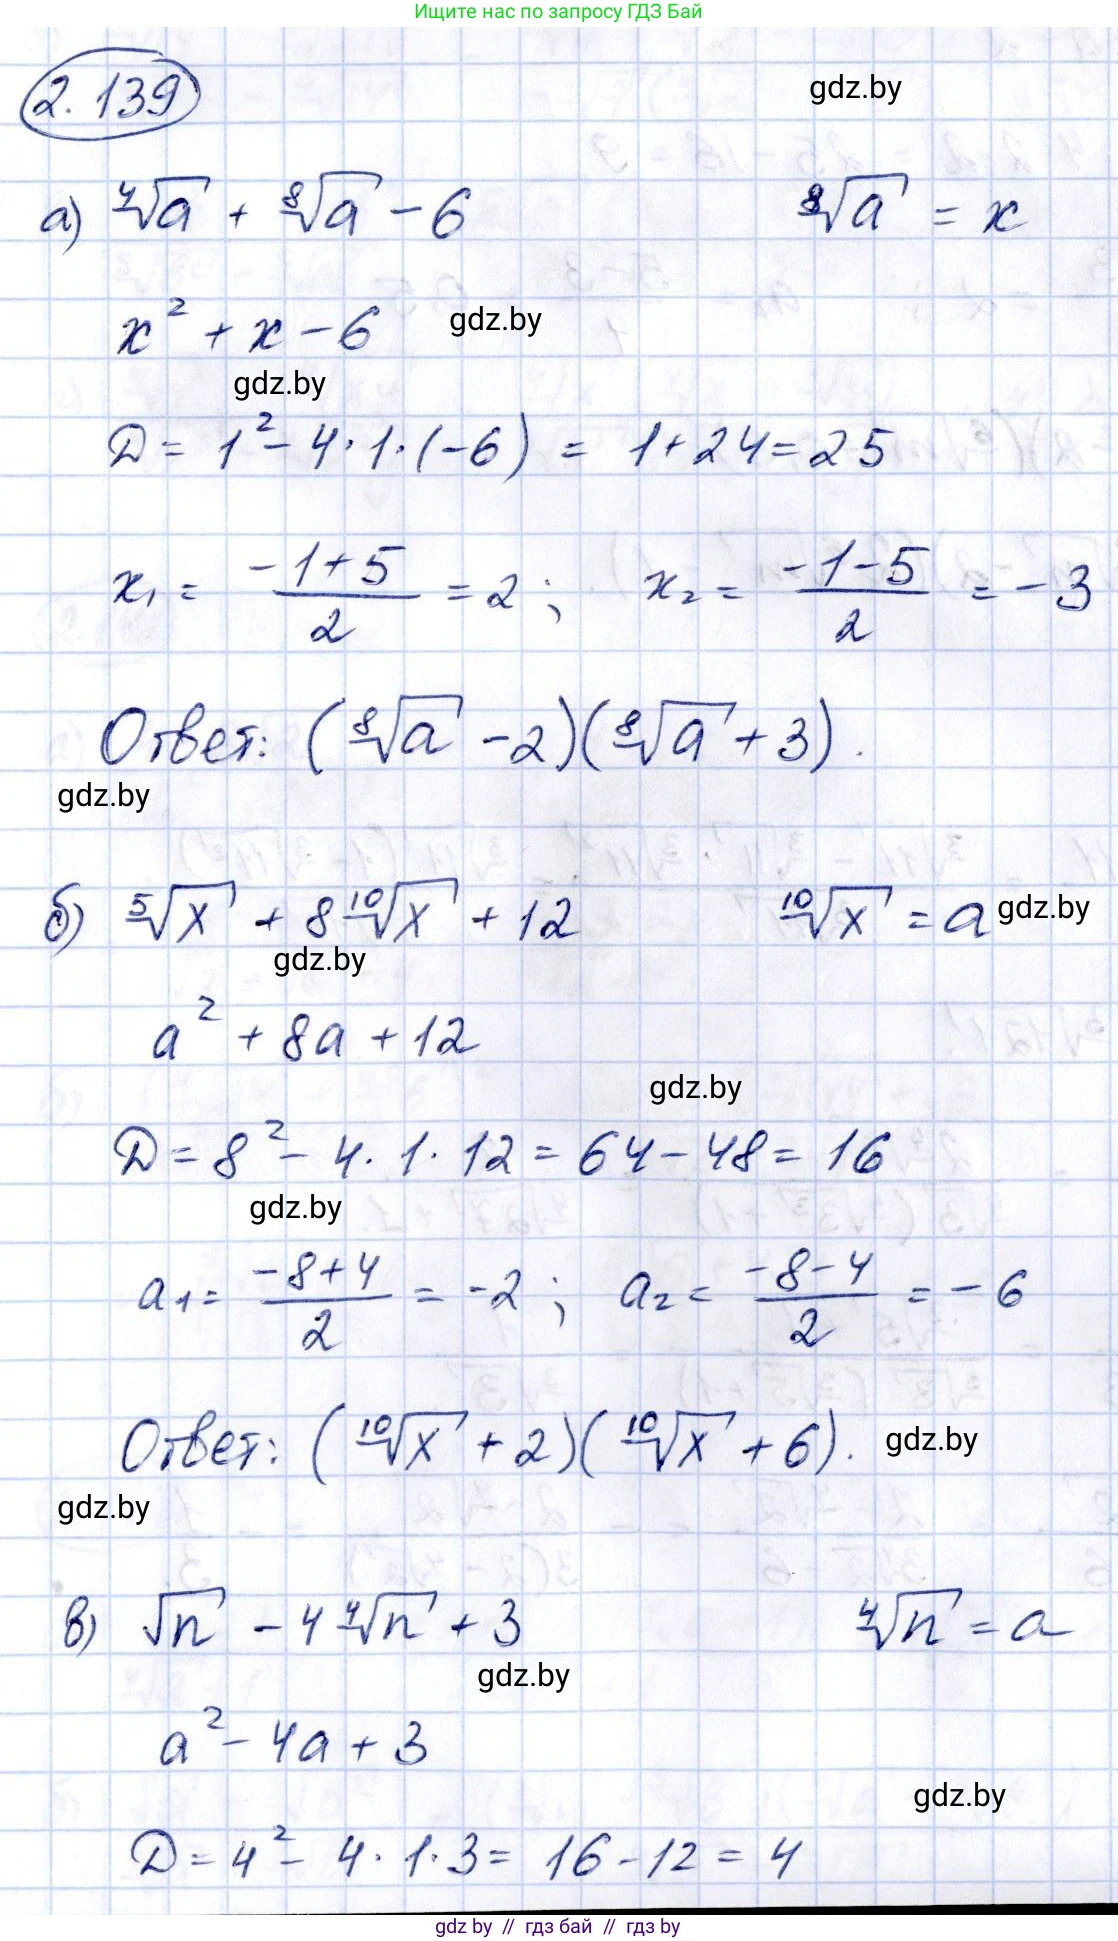 Ищите нас по запросу ГДЗ Бай
2.139
gdz.by
а) ⁴√a + ⁸√a - 6    ⁸√a = x
x² + x - 6    gdz.by
gdz.by
D = 1² - 4·1·(-6) = 1+24=25
x₁ = (-1+5)/2 = 2 ; x₂ = (-1-5)/2 = -3
Ответ: (⁸√a - 2)(⁸√a + 3).
gdz.by
б) ⁵√x + 8 ¹⁰√x + 12    ¹⁰√x = a    gdz.by
gdz.by
a² + 8a + 12
gdz.by
D = 8² - 4·1·12 = 64-48 = 16
gdz.by
a₁ = (-8+4)/2 = -2 ; a₂ = (-8-4)/2 = -6
Ответ: (¹⁰√x + 2)(¹⁰√x + 6).    gdz.by
gdz.by
в) √n - 4 ⁴√n + 3    ⁴√n = a
gdz.by
a² - 4a + 3
gdz.by
D = 4² - 4·1·3 = 16-12 = 4
gdz by // гдз бай // гдз by